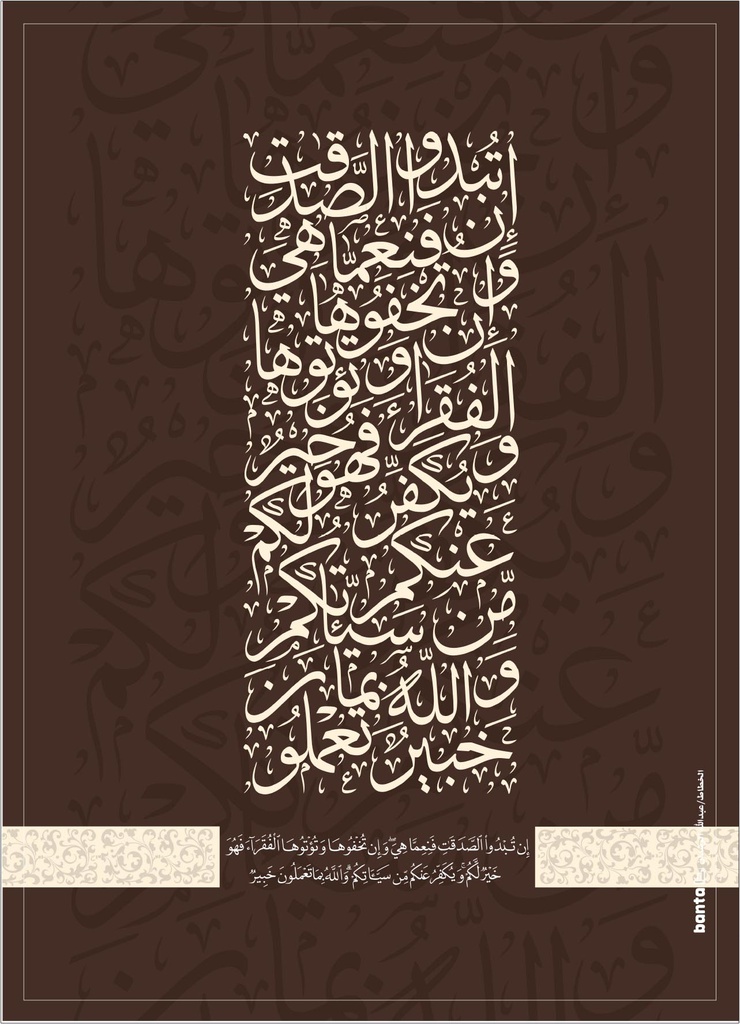 إن تبدوا الصدقت
فنعما هي
وإن تخفوها
وتؤتوها
الفقراء
فهو خير
ويكفر
لكم
عنكم
من سيئاتكم
والله بما
تعملون
خبير
إِن تُبْدُوا۟ ٱلصَّدَقَٰتِ فَنِعِمَّا هِىَ ۖ وَإِن تُخْفُوهَا وَتُؤْتُوهَا ٱلْفُقَرَآءَ فَهُوَ
خَيْرٌ لَّكُمْ ۚ وَيُكَفِّرُ عَنكُم مِّن سَيِّـَٔاتِكُمْ ۗ وَٱللَّهُ بِمَا تَعْمَلُونَ خَبِيرٌ
الخطاط/عبدالله
banta